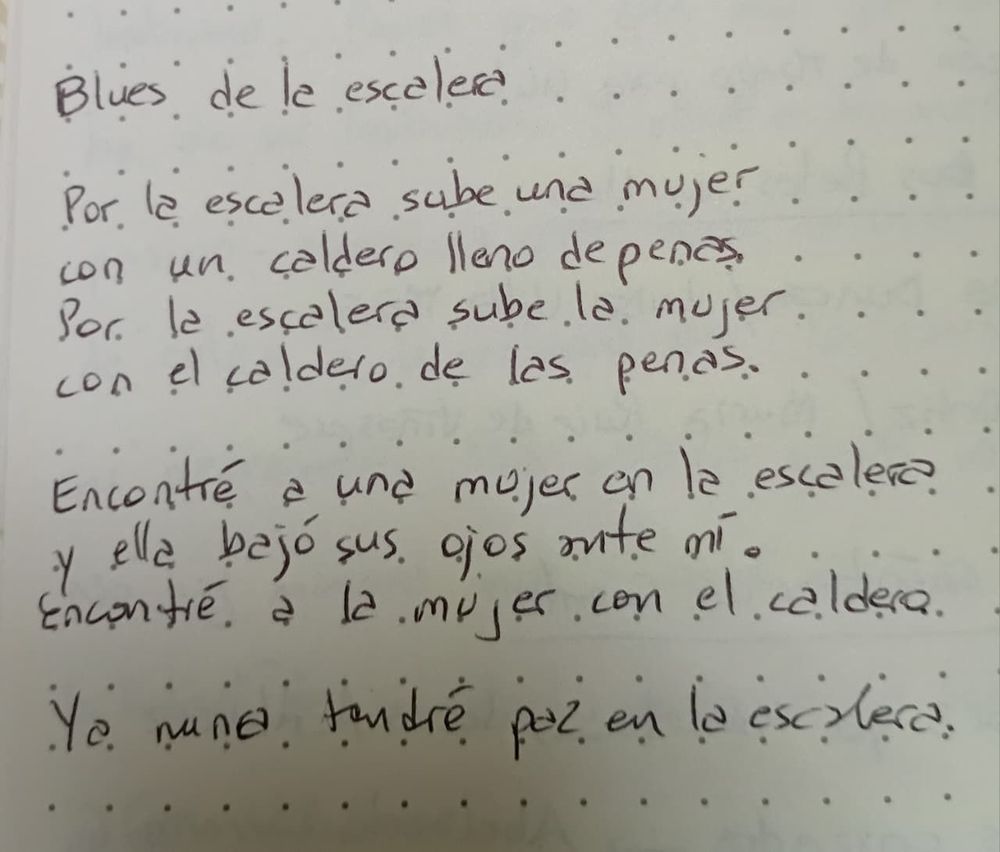 Blues de la escalera
Por la escalera sube una mujer
con un caldero lleno de penas.
Por la escalera sube la mujer
con el caldero de las penas.
Encontré a una mujer en la escalera
y ella bajó sus ojos ante mí.
Encontré a la mujer con el caldero.
Ya nunca tendré paz en la escalera.